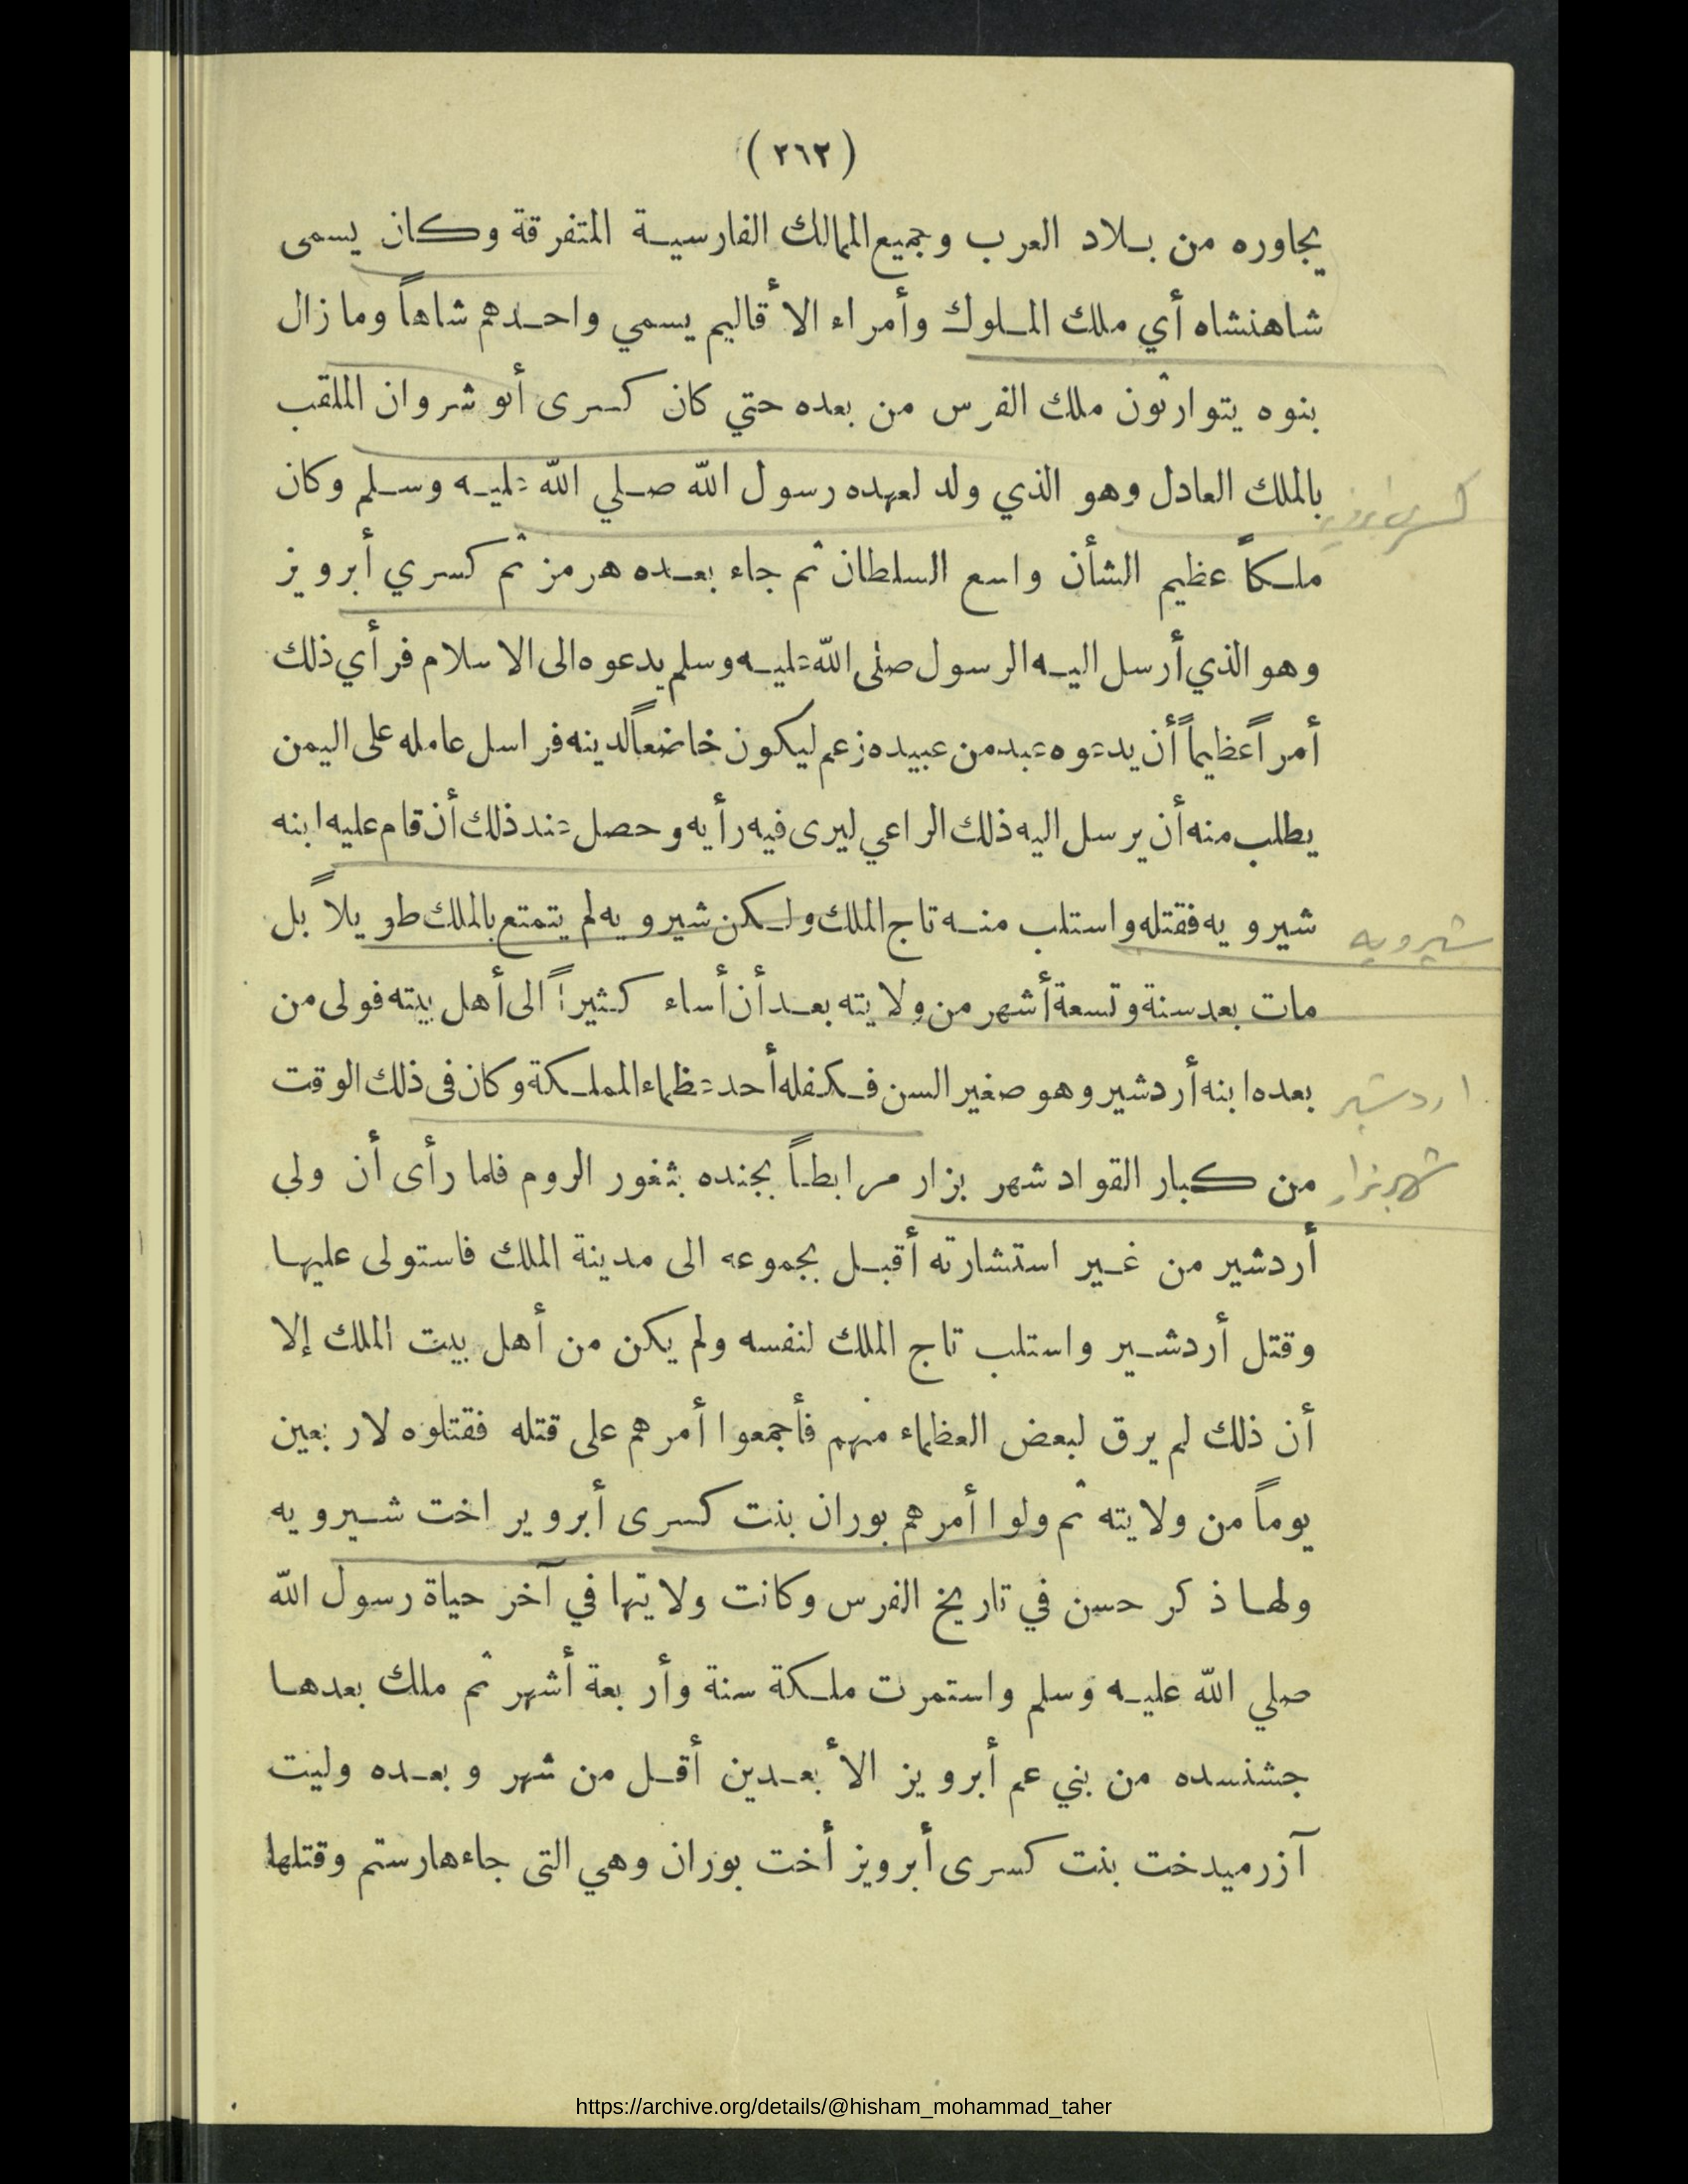 (٢٦٣)
يجاوره من بلاد العرب وجميع الممالك الفارسية المتفرقة وكان يسمى
شاهنشاه أي ملك الملوك وأمراء الأقاليم يسمي واحدهم شاهاً وما زال
بنوه يتوارثون ملك الفرس من بعده حتي كان كسرى أنو شروان الملقب
بالملك العادل وهو الذي ولد لعهده رسول الله صلي الله عليه وسلم وكان
كسرى ابرويز
ملكاً عظيم الشأن واسع السلطان ثم جاء بعده هرمز ثم كسري أبرويز
وهو الذي أرسل اليه الرسول صلى الله عليه وسلم يدعوه الى الاسلام فرأي ذلك
أمراً عظيماً أن يدعوه عبد من عبيده زعم ليكون خاضعاً لدينه فراسل عامله على اليمن
يطلب منه أن يرسل اليه ذلك الراعي ليرى فيه رأيه وحصل عند ذلك أن قام عليه ابنه
شيرويه فقتله واستلب منه تاج الملك ولكن شيرويه لم يتمتع بالملك طويلاً بل
شيرويه
مات بعد سنة وتسعة أشهر من ولايته بعد أن أساء كثيراً الى أهل بيته فولى من
بعده ابنه أردشير وهو صغير السن فكفله أحد عظماء المملكة وكان فى ذلك الوقت
اردشير
من كبار القواد شهر بزار مرابطاً بجنده بثغور الروم فلما رأى أن ولي
شهربزار
أردشير من غير استشارته أقبل بجموعه الى مدينة الملك فاستولى عليها
وقتل أردشير واستلب تاج الملك لنفسه ولم يكن من أهل بيت الملك إلا
أن ذلك لم يرق لبعض العظماء منهم فأجمعوا أمرهم على قتله فقتلوه لاربعين
يوماً من ولايته ثم ولوا أمرهم بوران بنت كسرى أبروير اخت شيرويه
ولها ذكر حسن في تاريخ الفرس وكانت ولايتها في آخر حياة رسول الله
صلي الله عليه وسلم واستمرت ملكة سنة وأربعة أشهر ثم ملك بعدها
جشنسده من بني عم أبرويز الأبعدين أقل من شهر وبعده وليت
آزرميدخت بنت كسرى أبرويز أخت بوران وهي التى جاءها رستم وقتلها
https://archive.org/details/@hisham_mohammad_taher